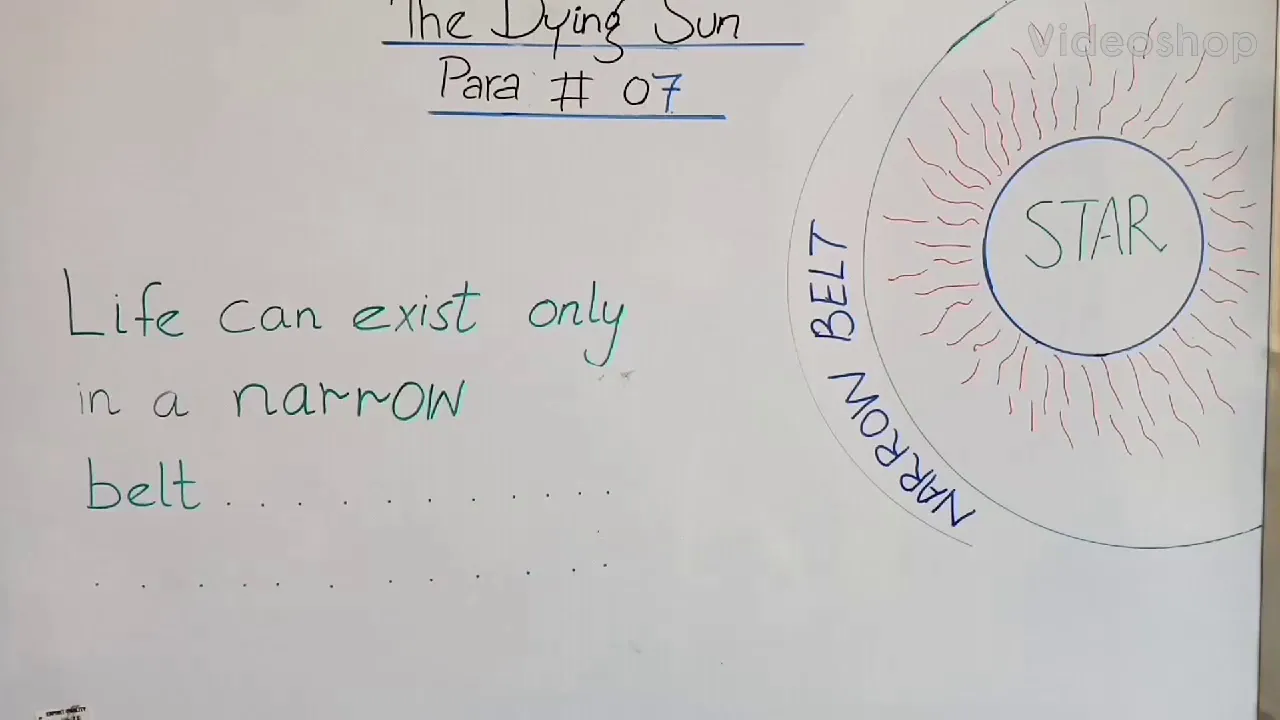 The Dying Sun
Para # 07
Life can exist only
in a narrow
belt . . . . . . . . . . .
. . . . . . . . . . .
NARROW BELT
STAR
Videoshop